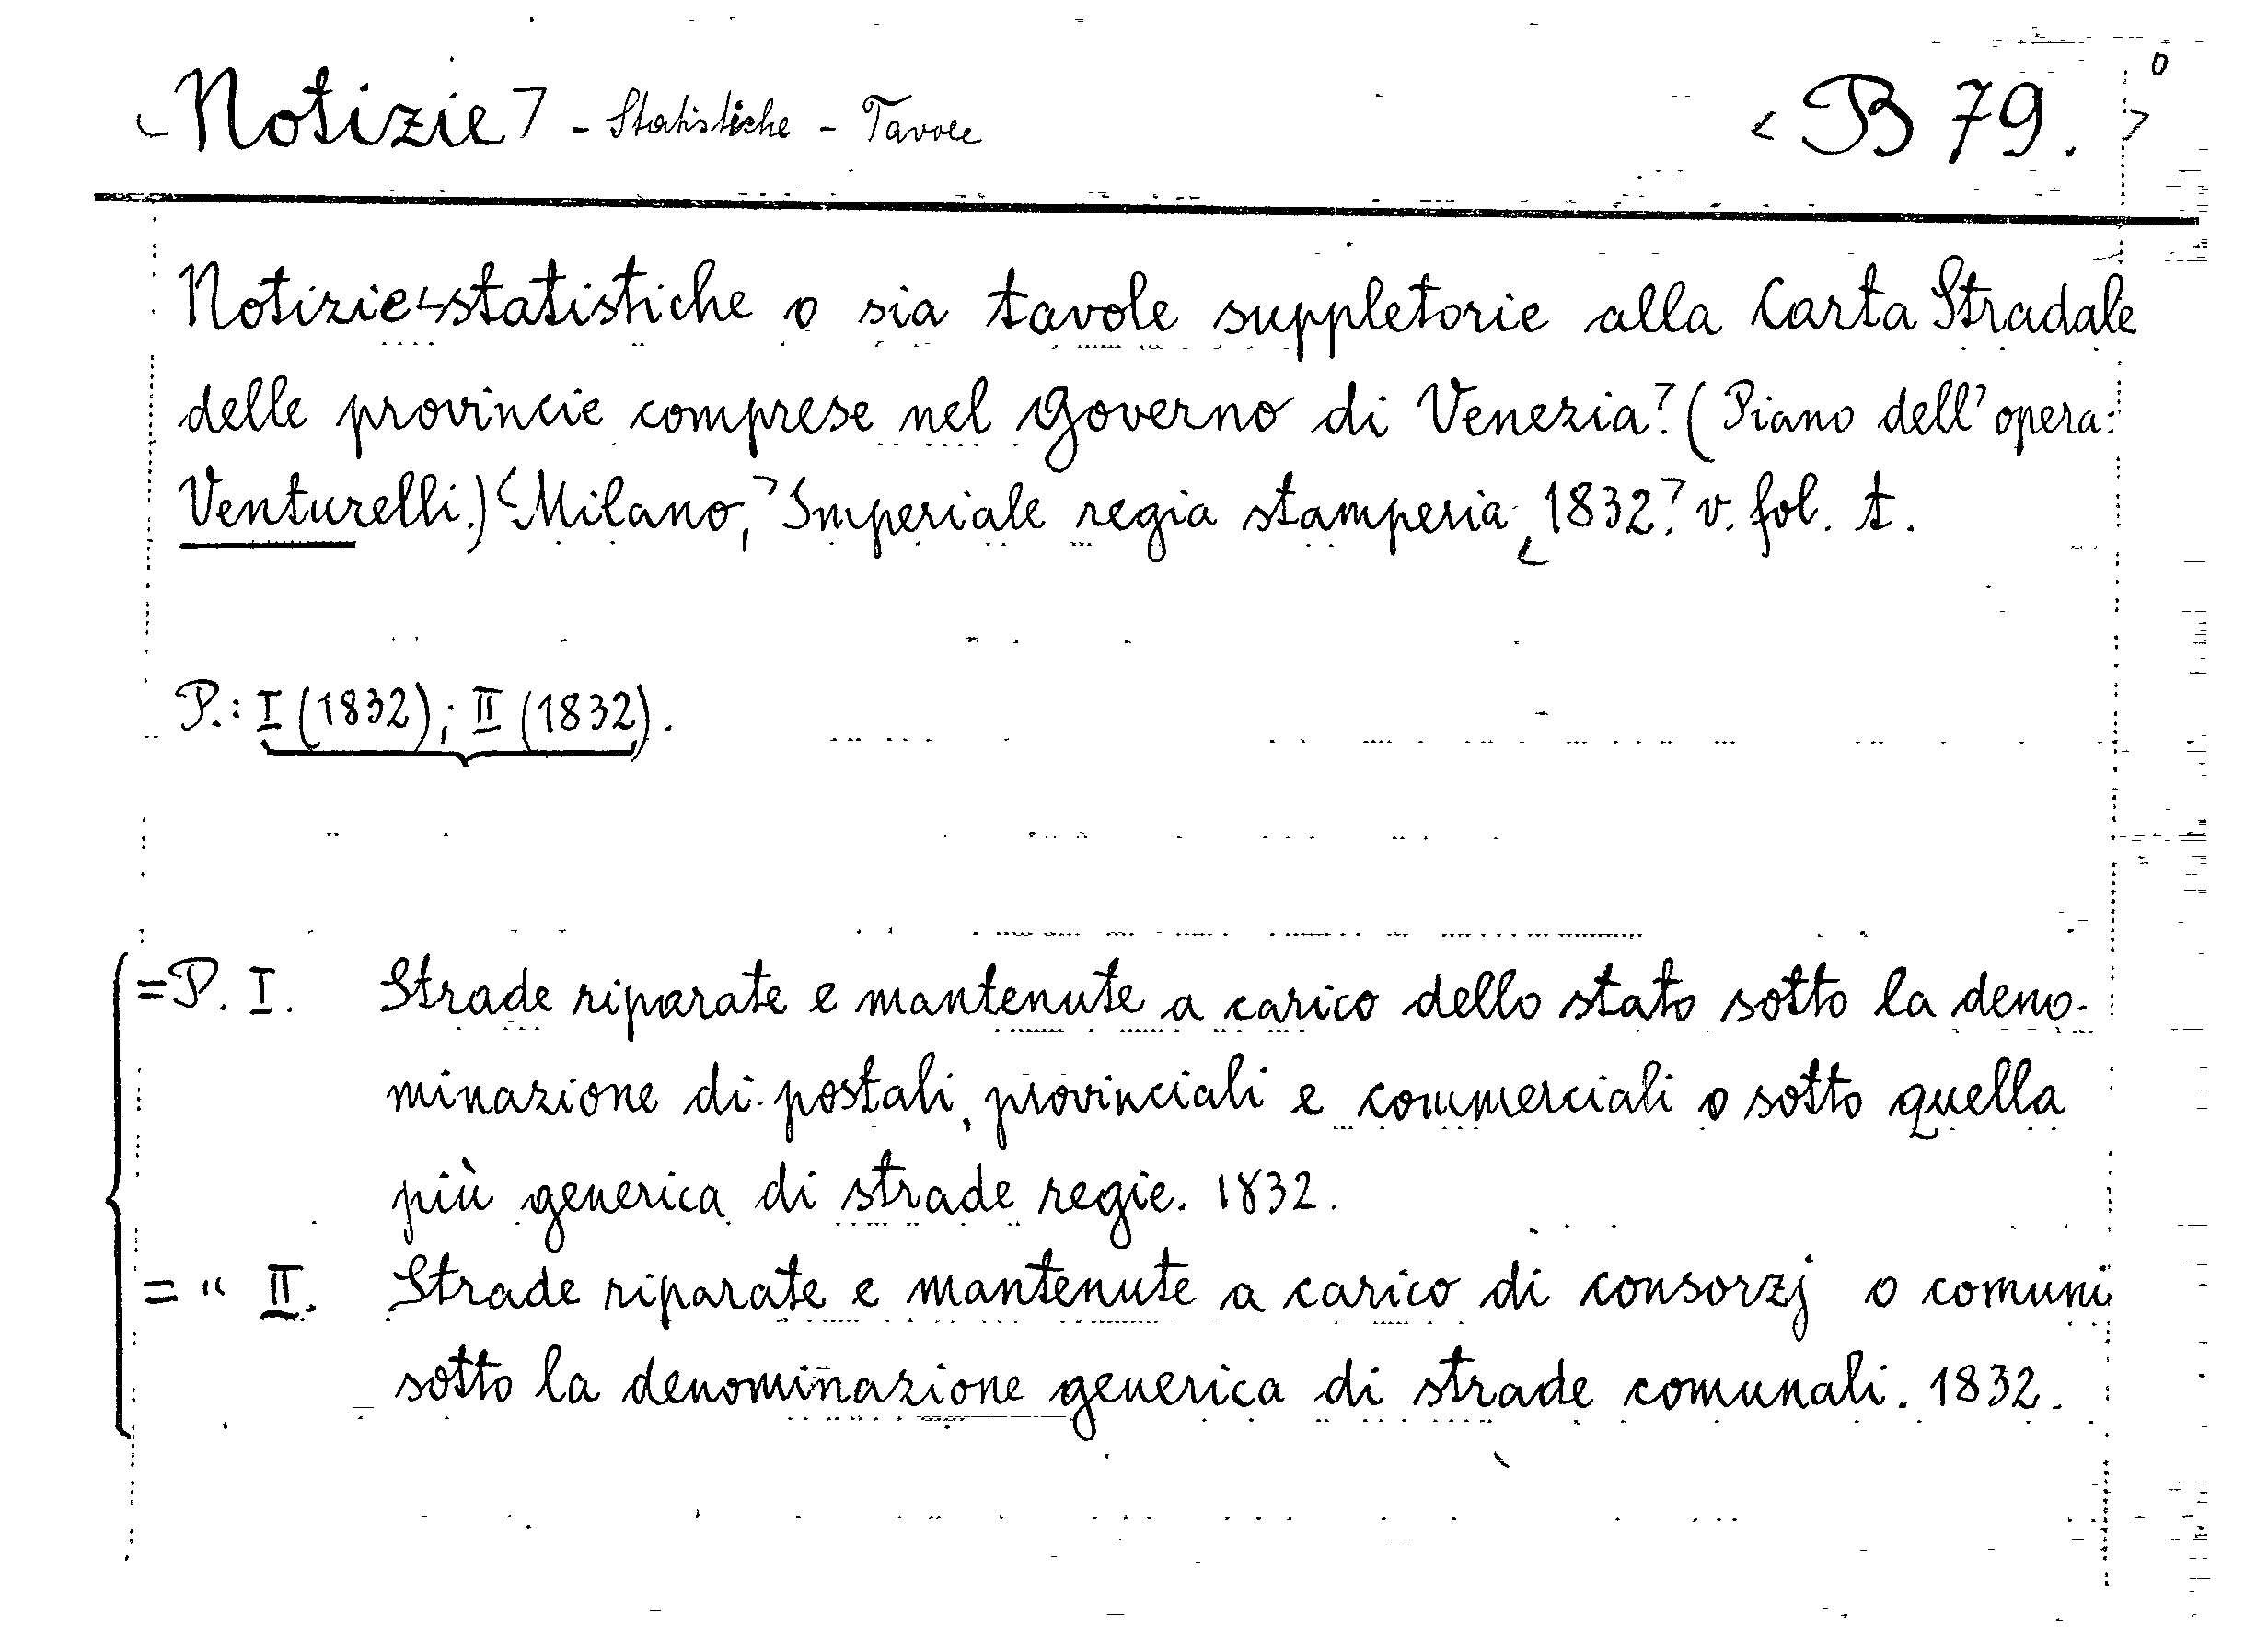 Notizie - Statistiche - Tavole
B 79.
Notizie statistiche o sia tavole suppletorie alla Carta Stradale
delle provincie comprese nel governo di Venezia. (Piano dell' opera:
Venturelli.) Milano, Imperiale regia stamperia, 1832. v. fol. t.
P.: I (1832); II (1832).
=P. I. Strade riparate e mantenute a carico dello stato sotto la deno-
minazione di postali, provinciali e commerciali o sotto quella
più generica di strade regie. 1832.
= " II. Strade riparate e mantenute a carico di consorzj o comuni
sotto la denominazione generica di strade comunali. 1832.